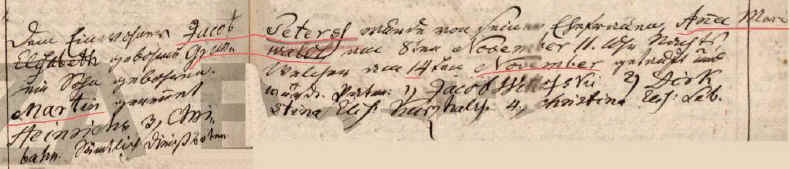 Dem Einwohner Jacob Peters wurde von seiner Ehefrauen, Anna Mari
Elisabeth gebohrne Grunwald am 8ten November 11. Uhr Nachts
ein Sohn gebohren. Welcher am 14ten November getauft und
Martin genennet wurde. Paten: 1) Jacob 2) Dirk
Heinrichs 3, Christina Elis: Kurzhals 4, Christina Elis: Leb.
bahn. Sämtlich Dienstboten